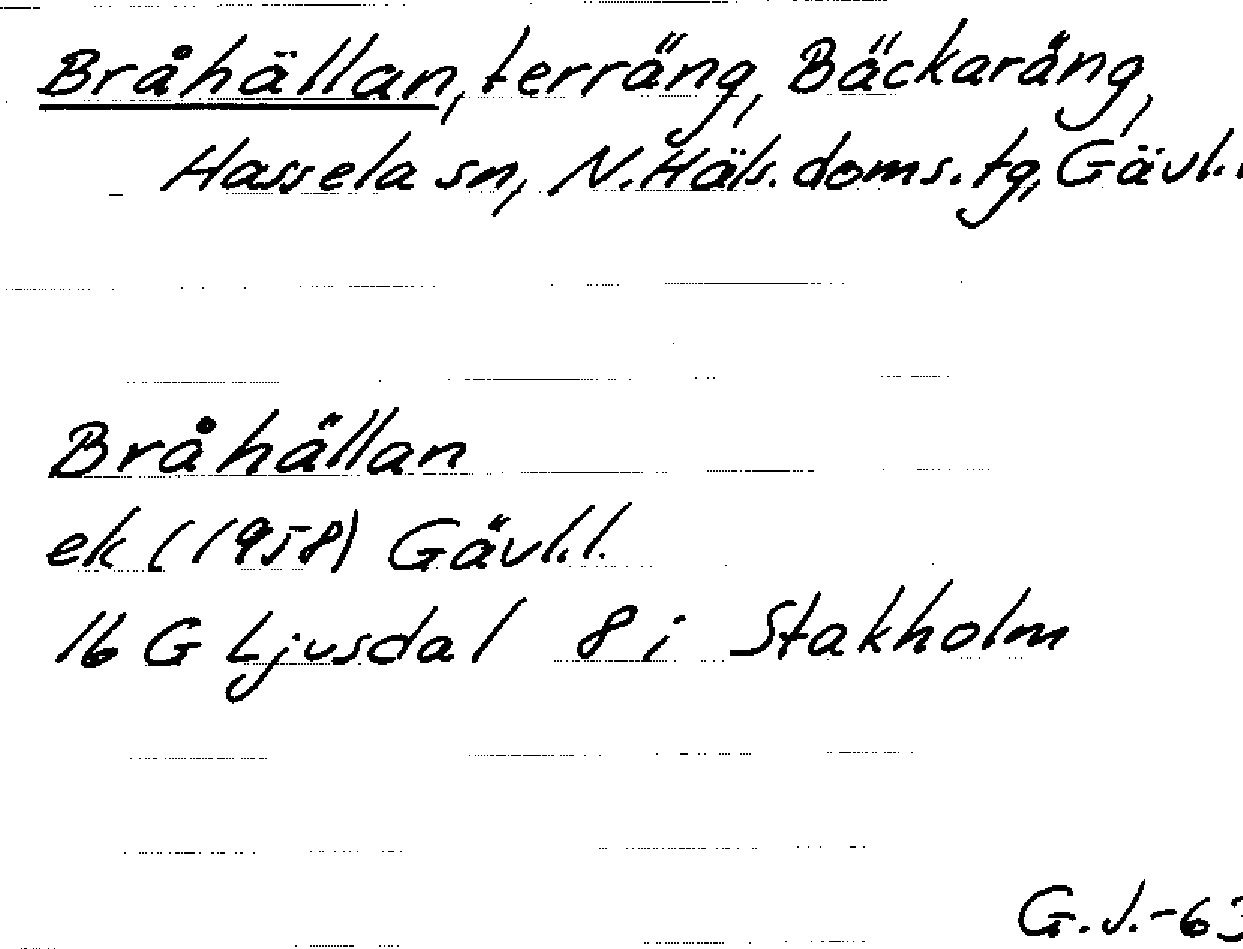 Bråhällan, terräng, Bäckaräng,
Hassela sn, N.Häls.doms.tg, Gävl.l
Bråhällan
ek (1958) Gävl.l.
16 G Ljusdal 8 i Stakholm
G.J.-63